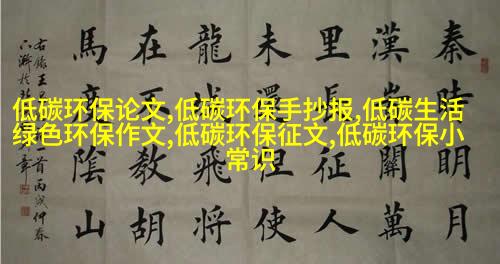 低碳环保论文,低碳环保手抄报,低碳生活
绿色环保作文,低碳环保征文,低碳环保小
常识
秦時眀月
漢時關萬
里長征人
未還但使
龍城飛將
在不教胡
馬度陰山
右錄王
首丙戌仲春